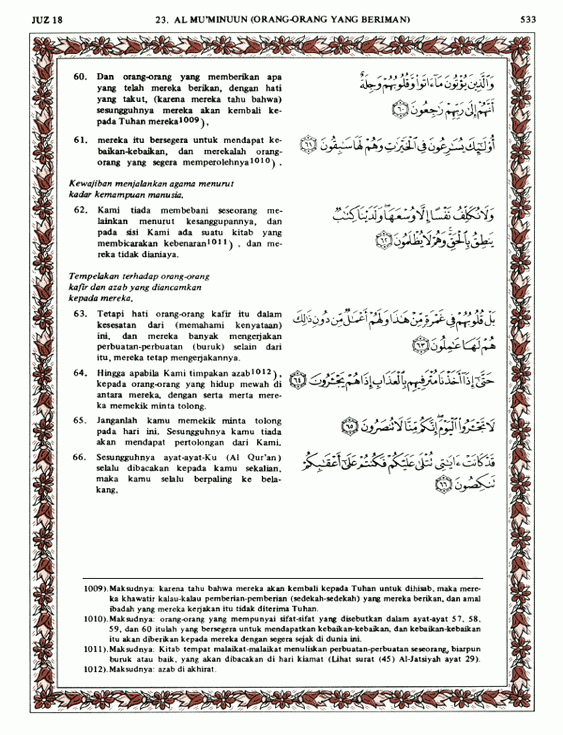 JUZ 18
23. AL MU'MINUUN (ORANG-ORANG YANG BERIMAN)
533
60. Dan orang-orang yang memberikan apa
yang telah mereka berikan, dengan hati
yang takut, (karena mereka tahu bahwa)
sesungguhnya mereka akan kembali ke-
pada Tuhan mereka1009),
وَٱلَّذِينَ يُؤْتُونَ مَآ ءَاتَوا۟ وَّقُلُوبُهُمْ وَجِلَةٌ
أَنَّهُمْ إِلَىٰ رَبِّهِمْ رَٰجِعُونَ ٦٠
61. mereka itu bersegera untuk mendapat ke-
baikan-kebaikan, dan merekalah orang-
orang yang segera memperolehnya1010) .
أُو۟لَٰٓئِكَ يُسَٰرِعُونَ فِى ٱلْخَيْرَٰتِ وَهُمْ لَهَا سَٰبِقُونَ ٦١
Kewajiban menjalankan agama menurut
kadar kemampuan manusia.
62. Kami tiada membebani seseorang me-
lainkan menurut kesanggupannya, dan
pada sisi Kami ada suatu kitab yang
membicarakan kebenaran1011) , dan me-
reka tidak dianiaya.
وَلَا نُكَلِّفُ نَفْسًا إِلَّا وُسْعَهَا وَلَدَيْنَا كِتَٰبٌ
يَنطِقُ بِٱلْحَقِّ وَهُمْ لَا يُظْلَمُونَ ٦٢
Tempelakan terhadap orang-orang
kafir dan azab yang diancamkan
kepada mereka.
63. Tetapi hati orang-orang kafir itu dalam
kesesatan dari (memahami kenyataan)
ini, dan mereka banyak mengerjakan
perbuatan-perbuatan (buruk) selain dari
itu, mereka tetap mengerjakannya.
بَلْ قُلُوبُهُمْ فِى غَمْرَةٍ مِّنْ هَٰذَا وَلَهُمْ أَعْمَٰلٌ مِّن دُونِ ذَٰلِكَ
هُمْ لَهَا عَٰمِلُونَ ٦٣
64. Hingga apabila Kami timpakan azab1012),
kepada orang-orang yang hidup mewah di
antara mereka, dengan serta merta mere-
ka memekik minta tolong.
حَتَّىٰٓ إِذَآ أَخَذْنَا مُتْرَفِيهِم بِٱلْعَذَابِ إِذَا هُمْ يَجْـَٔرُونَ ٦٤
65. Janganlah kamu memekik minta tolong
pada hari ini. Sesungguhnya kamu tiada
akan mendapat pertolongan dari Kami.
لَا تَجْـَٔرُوا۟ ٱلْيَوْمَ إِنَّكُم مِّنَّا لَا تُنصَرُونَ ٦٥
66. Sesungguhnya ayat-ayat-Ku (Al Qur'an)
selalu dibacakan kepada kamu sekalian,
maka kamu selalu berpaling ke bela-
kang,
قَدْ كَانَتْ ءَايَٰتِى تُتْلَىٰ عَلَيْكُمْ فَكُنتُمْ عَلَىٰٓ أَعْقَٰبِكُمْ
تَنكِصُونَ ٦٦
1009). Maksudnya: karena tahu bahwa mereka akan kembali kepada Tuhan untuk dihisab, maka mere-
ka khawatir kalau-kalau pemberian-pemberian (sedekah-sedekah) yang mereka berikan, dan amal
ibadah yang mereka kerjakan itu tidak diterima Tuhan.
1010). Maksudnya: orang-orang yang mempunyai sifat-sifat yang disebutkan dalam ayat-ayat 57, 58,
59, dan 60 itulah yang bersegera untuk mendapatkan kebaikan-kebaikan, dan kebaikan-kebaikan
itu akan diberikan kepada mereka dengan segera sejak di dunia ini.
1011). Maksudnya: Kitab tempat malaikat-malaikat menuliskan perbuatan-perbuatan seseorang, biarpun
buruk atau baik, yang akan dibacakan di hari kiamat (Lihat surat (45) Al-Jatsiyah ayat 29).
1012). Maksudnya: azab di akhirat.